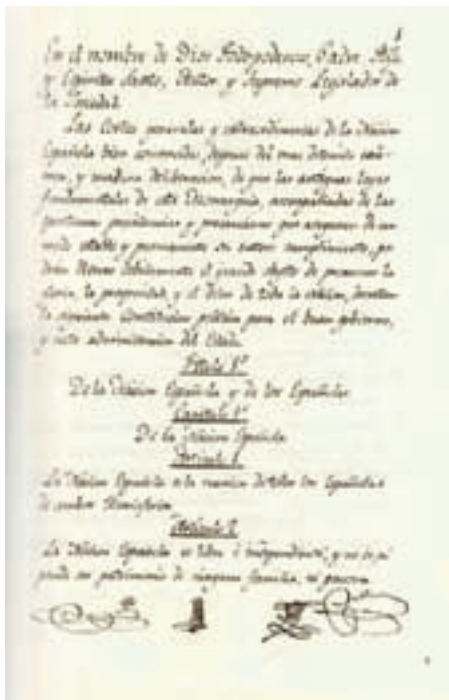 En el nombre de Dios Todopoderoso, Padre, Hijo
y Espiritu Santo, Autor y Supremo Legislador de
la Sociedad.
Las Cortes generales y extraordinarias de la Nacion
Española, bien convencidas, despues del mas detenido exa-
men, y madura deliberacion, de que las antiguas leyes
fundamentales de esta Monarquia, acompañadas de las
oportunas providencias y precauciones que aseguren de un
modo estable y permanente su entero cumplimiento, po-
drán llenar debidamente el grande objeto de promover la
gloria, la prosperidad, y el bien de toda la Nacion, decretan
la siguiente Constitucion politica para el buen gobierno,
y recta administracion del Estado.
Titulo 1º
De la Nacion Española y de los Españoles
Capitulo 1º
De la Nacion Española
Articulo 1
La Nacion Española es la reunion de todos los Españoles
de ambos Hemisferios.
Articulo 2
La Nacion Española es libre é independiente, y no es ni
puede ser patrimonio de ninguna familia, ni persona.